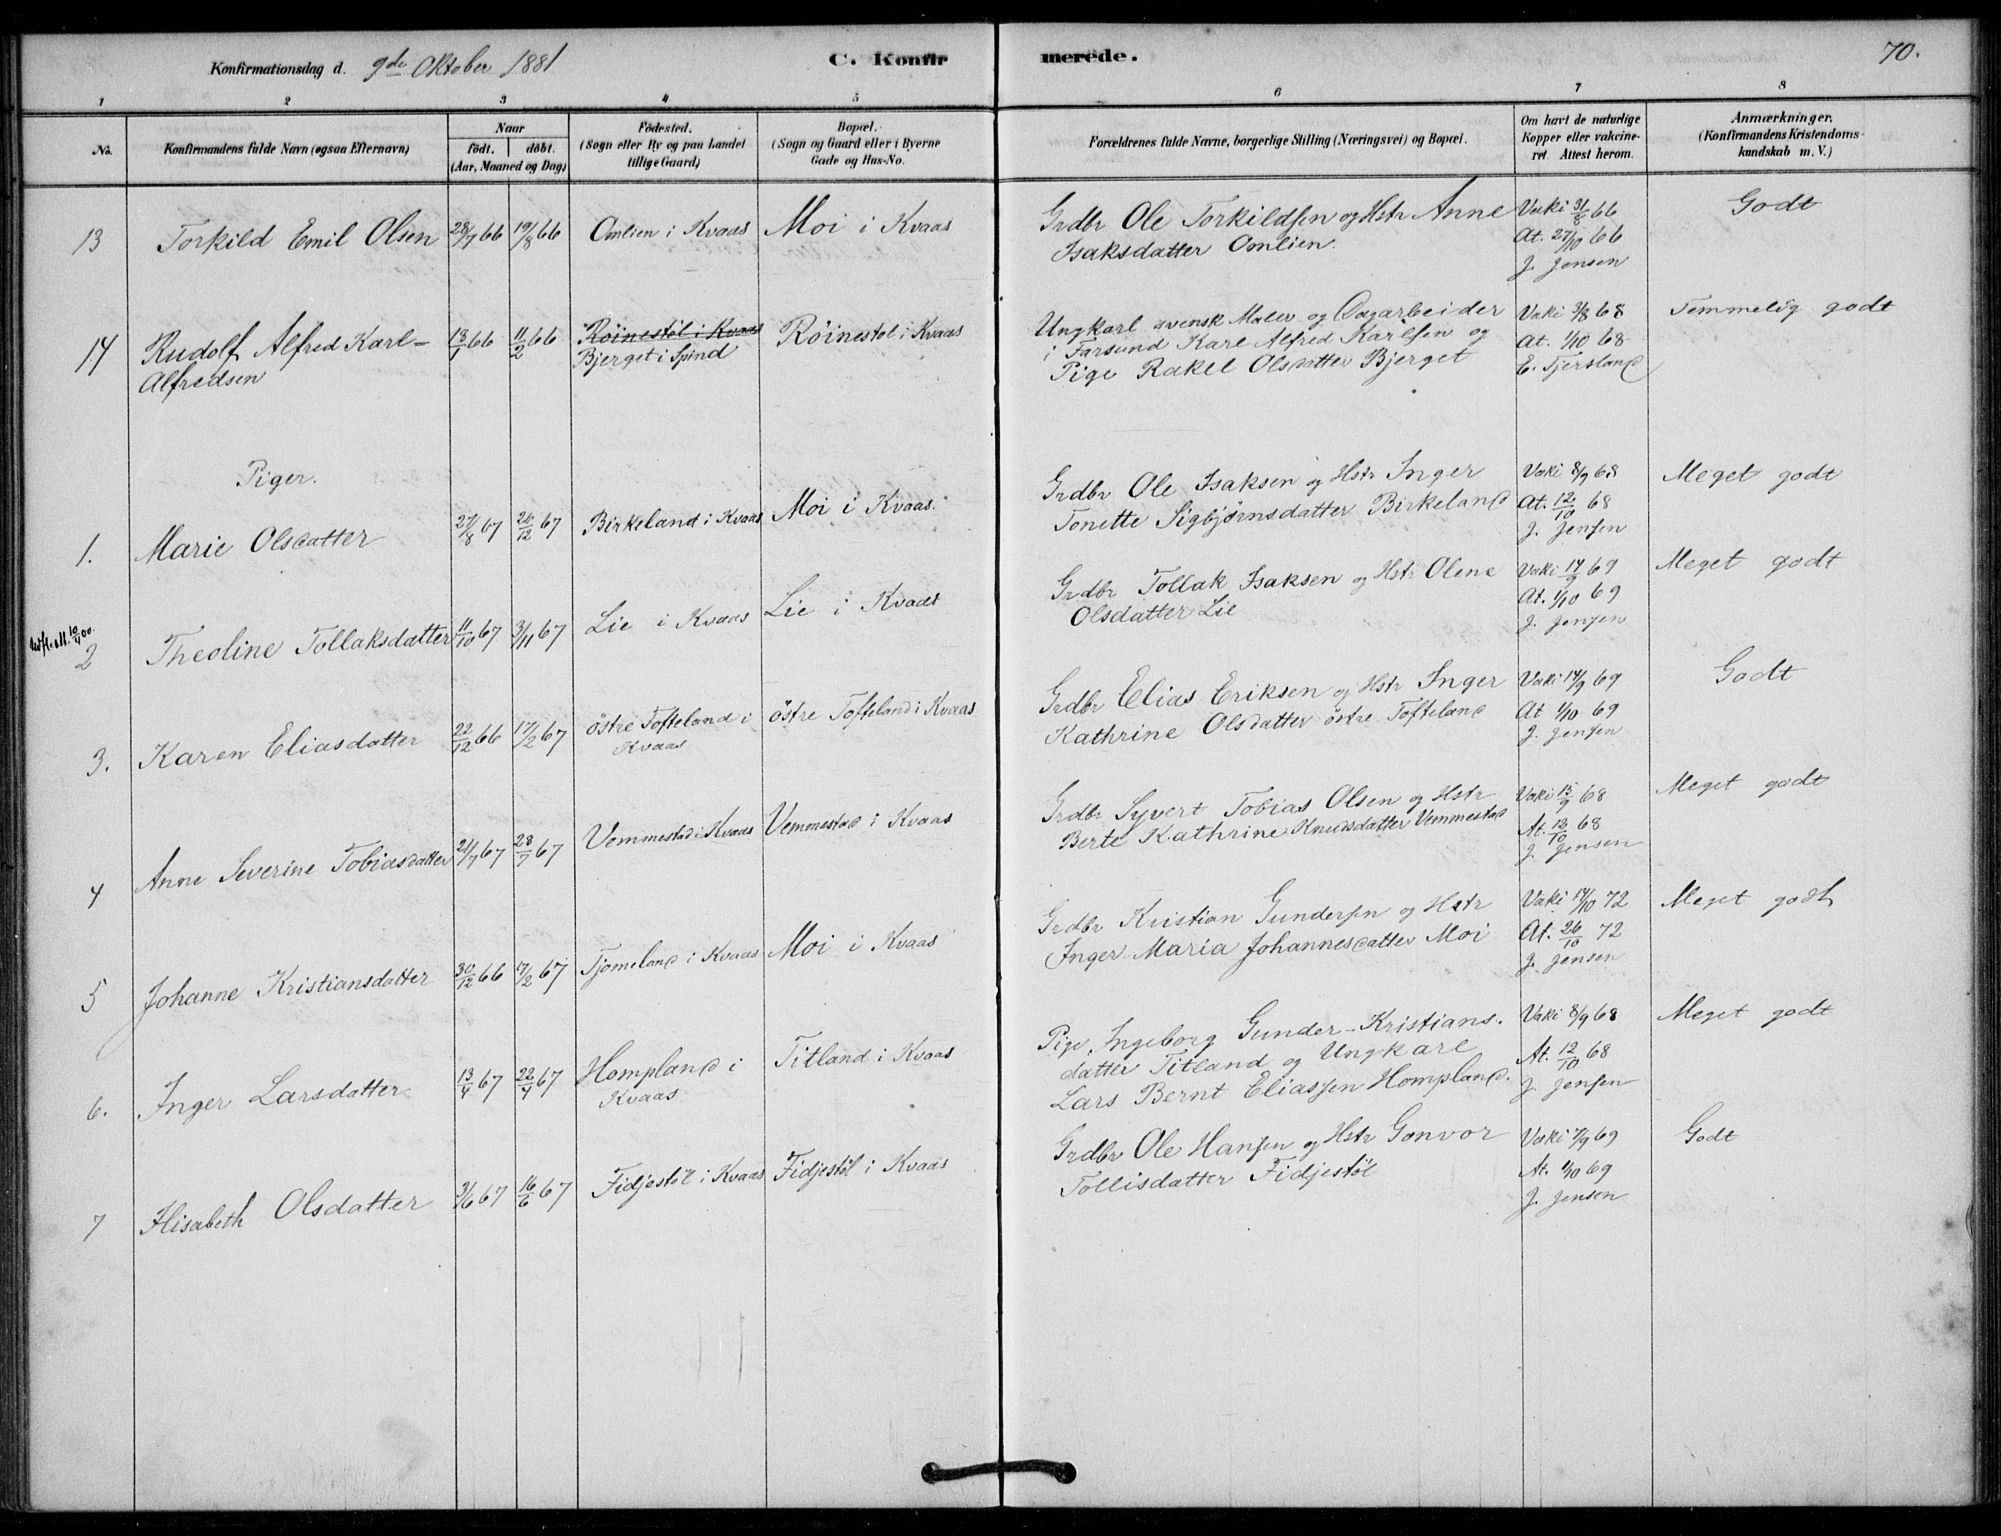 Konfirmationsdag d. 9de Oktober 1881
C. Konfirmerede.
70.
1 2 3 4 5 6 7 8
No.
Konfirmandens fulde Navn (ogsaa Efternavn)
Naar
født. døbt.
(Aar, Maaned og Dag)
Fødested.
(Sogn eller By og paa Landet
tillige Gaard)
Bopæl.
(Sogn og Gaard eller i Byerne
Gade og Hus-No.
Forældrenes fulde Navne, borgerlige Stilling (Næringsvei) og Bopæl.
Om havt de naturlige
Kopper eller vakcine-
ret. Attest herom.
Anmærkninger.
(Konfirmandens Kristendoms-
kundskab m. V.)
13 Torkild Emil Olsen 28/7 66 19/8 66 Omlien i Kvaas Moi i Kvaas
Grdbr Ole Torkildsen og Hstr Anne
Isaksdatter Omlien.
Vaki 31/8 66
At. 27/10 66
J. Jensen
Godt
14 Rudolf Alfred Karl-
Alfredsen
13/1 66 11/2 66
Röinestöl i Kvaas
Bjerget i Spind
Röinestöl i Kvaas
Ungkarl svensk Maler og Dagarbeider
i Farsund Karl Alfred Karlsen og
Pige Rakel Olsdatter Bjerget
Vaki 3/8 68
At. 1/10 68
E. Tjersland
Temmelig godt
Piger.
1. Marie Olsdatter 27/8 67 26/12 67 Birkeland i Kvaas Moi i Kvaas.
Grdbr Ole Isaksen og Hstr Inger
Tonette Sigbjørnsdatter Birkeland
Vaki 8/9 68
At. 12/10 68
J. Jensen
Meget godt
2 Theoline Tollaksdatter 11/10 67 3/11 67 Lie i Kvaas Lie i Kvaas
Grdbr Tollak Isaksen og Hstr Olene
Olsdatter Lie
Vaki 14/9 69
At. 1/10 69
J. Jensen
Meget godt
3. Karen Eliasdatter 22/12 66 17/2 67 östre Tofteland i
Kvaas
östre Tofteland i Kvaas
Grdbr Elias Eriksen og Hstr Inger
Kathrine Olsdatter östre Tofteland
Vaki 14/9 69
At 1/10 69
J. Jensen
Godt
4 Anne Severine Tobiasdatter 21/7 67 28/7 67 Vemmestad i Kvaas Vemmestad i Kvaas
Grdbr Syvert Tobias Olsen og Hstr
Berte Kathrine Knudsdatter Vemmestad
Vaki 15/9 68
At. 13/10 68
J. Jensen
Meget godt
5 Johanne Kristiansdatter 30/12 66 17/2 67 Tjomeland i Kvaas Moi i Kvaas
Grdbr Kristian Gundersen og Hstr
Inger Maria Johannesdatter Moi
Vaki 14/10 72
At. 26/10 72
J. Jensen
Meget godt
6. Inger Larsdatter 13/4 67 22/4 67 Hompland i
Kvaas
Titland i Kvaas
Pige Ingeborg Gunder-Kristians-
datter Titland og Ungkarl
Lars Bernt Eliassen Hompland.
Vaki 8/9 68
At. 12/10 68
J. Jensen
Meget godt
7 Elisabeth Olsdatter 3/6 67 16/6 67 Fidjestöl i Kvaas Fidjestöl i Kvaas
Grdbr Ole Hansen og Hstr Gonvor
Tollisdatter Fidjestöl
Vaki 7/9 69
At. 1/10 69
J. Jensen
Godt